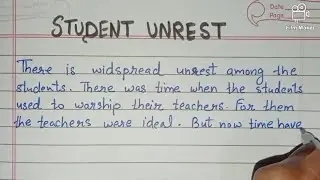 Date
Page
STUDENT UNREST
There is widspread unrest among the
students. There was time when the students
used to worship their teachers. For them
the teachers were ideal. But now time have